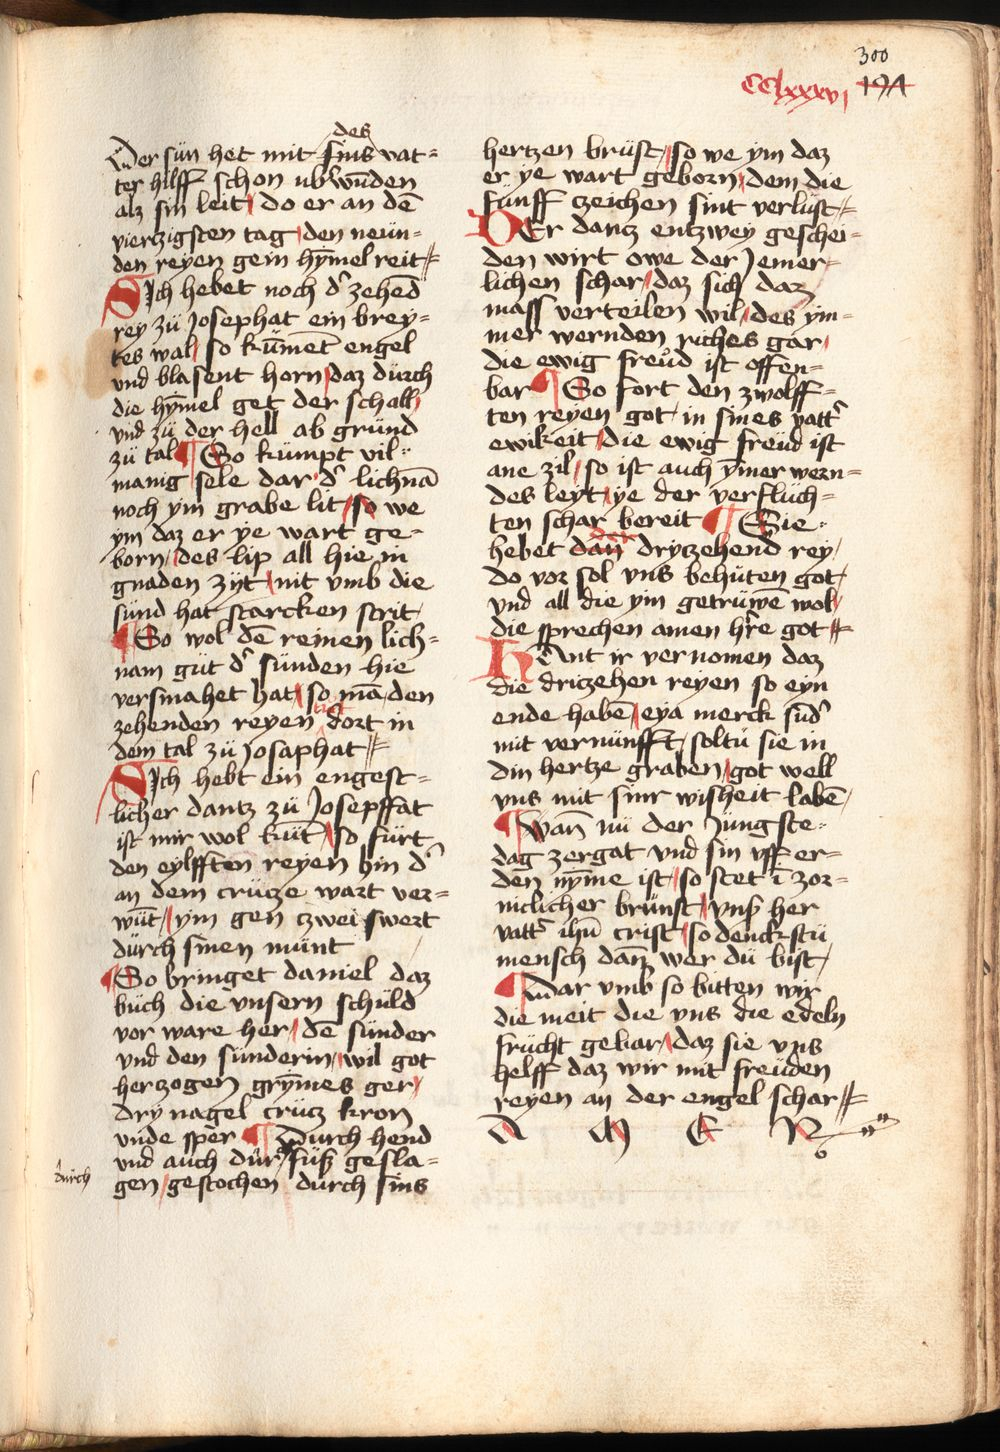 300
CClxxxvi 194
des
Der sün het mit sins vat=
ter hilff schon ubʼwūden
alz sin leit / do er an dē
vierczigsten tag / den neün-
den reyen gein hȳmel reit
SIch hebet noch dʼ zehend
rey zü Josephat ein brey=
tes wal / so kūmet engel
vnd blasent horn / daz dürch
die hȳmel get der schall
vnd zü der hell ab gründ
zü tal ¶ So kümpt vil=
manig sele dar dʼ lichnā
noch ym grabe lit / so we
ym daz er ye wart ge-
born / des lip all hie in
gnaden zyt / nit vmb die
sünd hat starcken strit
¶ So wol dē reinen lich=
nam güt dʼ sünden hie
versmahet hat / so mā den
zehenden reyen dort in
dem tal zü Josaphat
SIch hebt ein engest=
licher dantz zü Josepffat
ist mir wol kūt / so fürt
den eylfften reyen hin dʼ
an dem crücze wart ver=
wūt / ym gen zwei swert
dürch sinen münt
¶ So bringet daniel daz
büch die vnsern schüld
vor ware her / dē sünder
vnd den sünderin / wil got
herczogen grȳmes ger /
dry nagel crücz kron
vnde sper ¶ Dürch hend
vnd auch dür füß gesla=
dürch
gen / gestochen dürch sins
hertzen brüst / so we ym daz
er ye wart geborn / dem die
fünff zeichen sint verlüst
DEr dantz entzwey geschei=
den wirt owe der Jemer=
lichen schar / daz sich daz
mass verteilen wil / des ym=
mer wernden riches gar /
die ewig freüd ist offen=
bar ¶ So fort den zwolff=
ten reyen got / in sines vattʼ
ewikeit / die ewig freüd ist
ane zil / so ist auch ȳmer wern=
des leyt / ye der verflüch=
ten schar bereit ¶ Sie=
der
hebet dan drytzehend rey /
do vor sol vns behüten got /
vnd all die ym getrüwē wol /
die sprechen amen hʼre got
HAnt ir vernomen daz
die drizehen reyen so eyn
ende habē / eya merck sūdʼ
mit vernünfft / soltü sie in
din hertze graben / got well
vns mit sinr wisheit labē /
¶ Wan̄ nü der Jüngste=
dag zergat vnd sin vff er=
den nȳme ist / so stet ī zor=
niclicher brünst / vnß her
vattʼ ihū crist / so denckstü
mensch dan̄ wer dü bist /
¶ Dar vmb so bitten wir
die meit die vns die edeln
frücht gebar / daz sie vns
helff daz wir mit freüden
reyen an der engel schar
A M E N